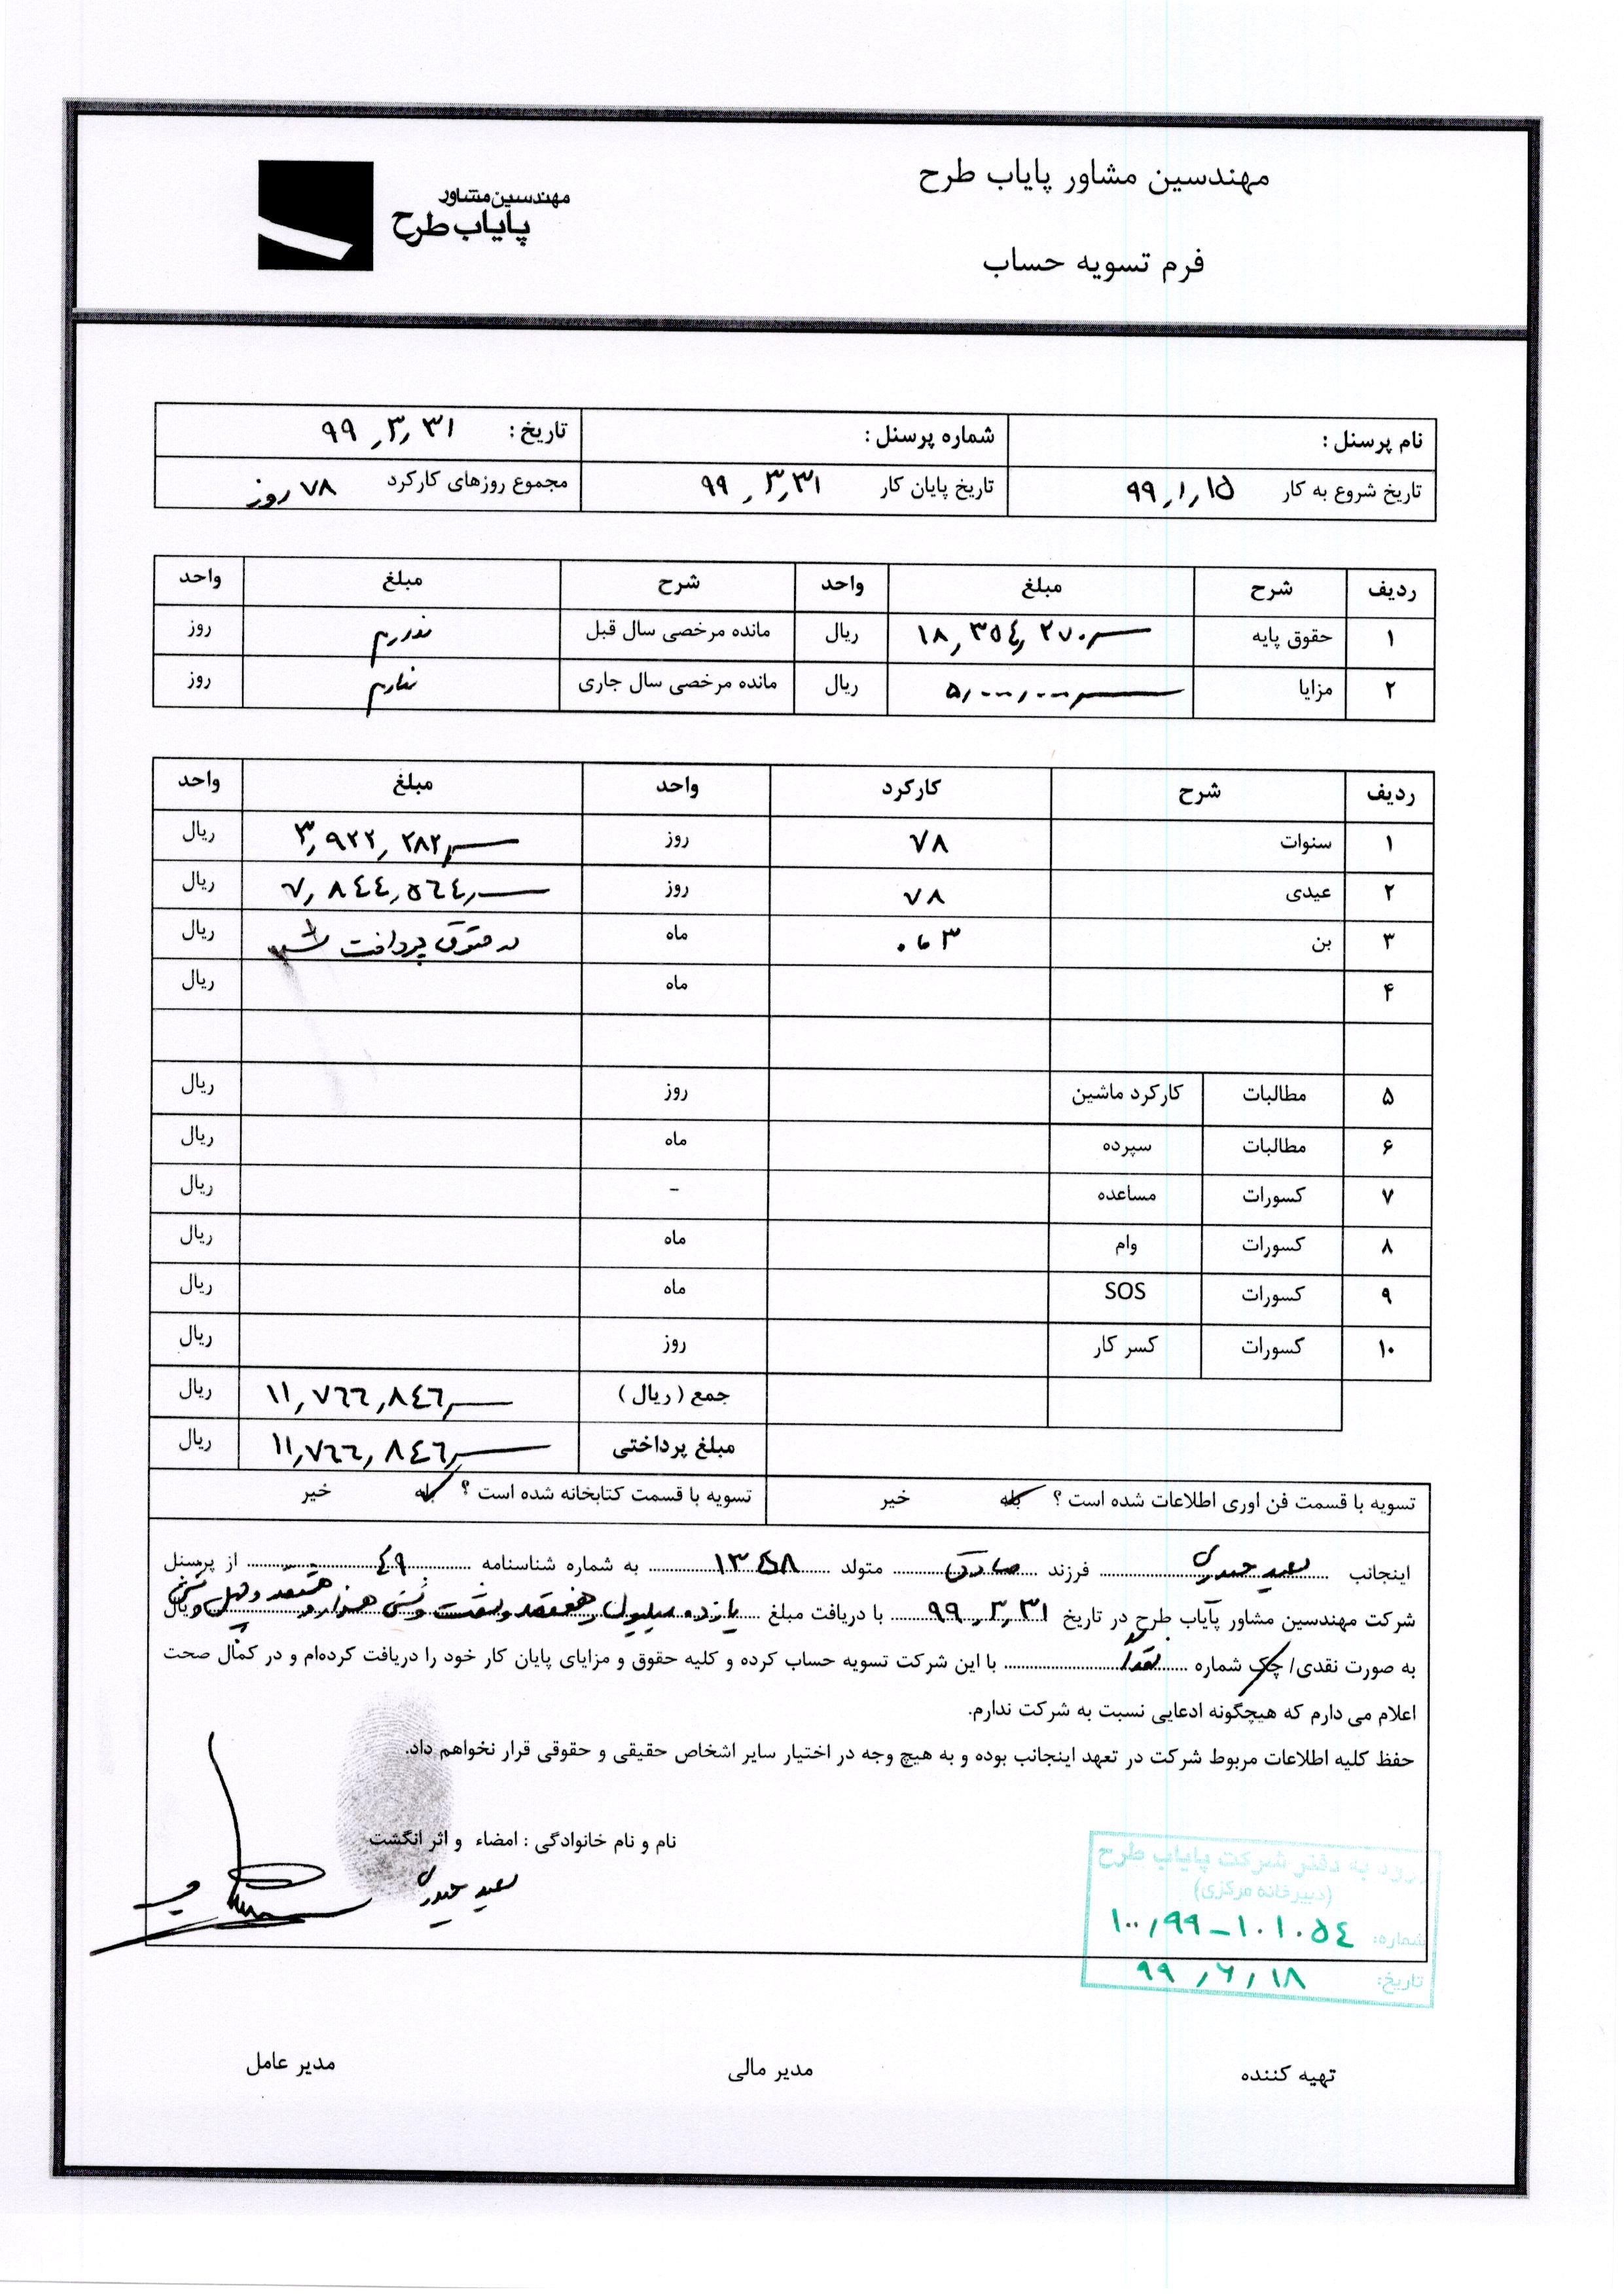 مهندسین مشاور پایاب طرح
مهندسین مشاور
پایاب طرح
فرم تسویه حساب
نام پرسنل : شماره پرسنل : تاریخ : ۹۹٫۳٫۳۱
تاریخ شروع به کار ۹۹٫۱٫۱۵ تاریخ پایان کار ۹۹٫۳٫۳۱ مجموع روزهای کارکرد ۷۸ روز
ردیف شرح مبلغ واحد شرح مبلغ واحد
۱ حقوق پایه ۱۸٫۳۵۴٫۲۷۰ ریال مانده مرخصی سال قبل ندارم روز
۲ مزایا ۵٫۰۰۰٫۰۰۰ ریال مانده مرخصی سال جاری ندارم روز
ردیف شرح کارکرد واحد مبلغ واحد
۱ سنوات ۷۸ روز ۳٫۹۲۲٫۲۸۲ ریال
۲ عیدی ۷۸ روز ۷٫۸۴۴٫۵۶۴ ریال
۳ بن ۰۶۳ ماه در حقوق پرداخت شد ریال
۴ ماه ریال
۵ مطالبات کارکرد ماشین روز ریال
۶ مطالبات سپرده ماه ریال
۷ کسورات مساعده - ریال
۸ کسورات وام ماه ریال
۹ کسورات SOS ماه ریال
۱۰ کسورات کسر کار روز ریال
جمع ( ریال ) ۱۱٫۷۶۶٫۸۴۶ ریال
مبلغ پرداختی ۱۱٫۷۶۶٫۸۴۶ ریال
تسویه با قسمت فن اوری اطلاعات شده است ؟ بله خیر تسویه با قسمت کتابخانه شده است ؟ بله خیر
اینجانب سعید حیدری فرزند صادق متولد ۱۳۵۸ به شماره شناسنامه ۴۹ از پرسنل
شرکت مهندسین مشاور پایاب طرح در تاریخ ۹۹٫۳٫۳۱ با دریافت مبلغ یازده میلیون و هفتصد و شصت و شش هزار و هشتصد و چهل و شش ریال
به صورت نقدی/ چک شماره نقداً با این شرکت تسویه حساب کرده و کلیه حقوق و مزایای پایان کار خود را دریافت کرده‌ام و در کمال صحت
اعلام می دارم که هیچگونه ادعایی نسبت به شرکت ندارم.
حفظ کلیه اطلاعات مربوط شرکت در تعهد اینجانب بوده و به هیچ وجه در اختیار سایر اشخاص حقیقی و حقوقی قرار نخواهم داد.
نام و نام خانوادگی : امضاء و اثر انگشت
سعید حیدری
ورود به دفتر شرکت پایاب طرح
(دبیرخانه مرکزی)
شماره: ۱۰۰٫۹۹-۱۰۱۰۵۴
تاریخ: ۹۹٫۶٫۱۸
تهیه کننده مدیر مالی مدیر عامل